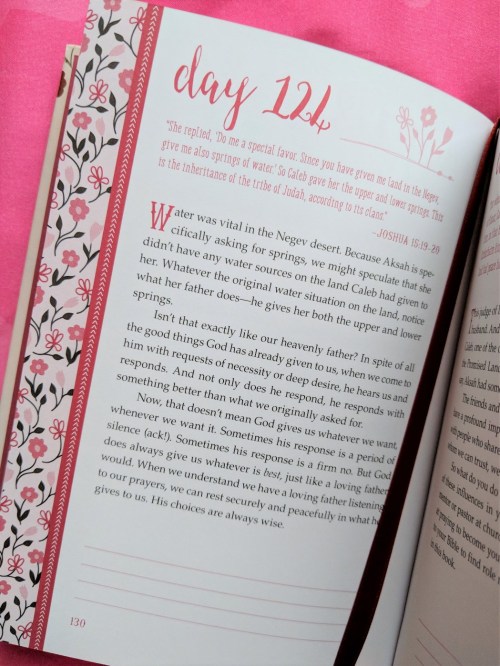 day 124
"She replied, 'Do me a special favor. Since you have given me land in the Negev,
give me also springs of water.' So Caleb gave her the upper and lower springs. This
is the inheritance of the tribe of Judah, according to its clans"
-JOSHUA 15:19-20
Water was vital in the Negev desert. Because Aksah is spe-
cifically asking for springs, we might speculate that she
didn't have any water sources on the land Caleb had given to
her. Whatever the original water situation on the land, notice
what her father does—he gives her both the upper and lower
springs.
Isn't that exactly like our heavenly father? In spite of all
the good things God has already given to us, when we come to
him with requests of necessity or deep desire, he hears us and
responds. And not only does he respond, he responds with
something better than what we originally asked for.
Now, that doesn't mean God gives us whatever we want,
whenever we want it. Sometimes his response is a period of
silence (ack!). Sometimes his response is a firm no. But God
does always give us whatever is best, just like a loving father
would. When we understand we have a loving father listening
to our prayers, we can rest securely and peacefully in what he
gives to us. His choices are always wise.
130
This judge of
husband. And
Lady, one of the
the Promised Land
as Aksah had some
The friends and
have a profound imp
with people who share
whom we can trust,
So what do you do
of these influences in y
mentor or pastor at church
praying to become you
your Bible to find role
in this book.